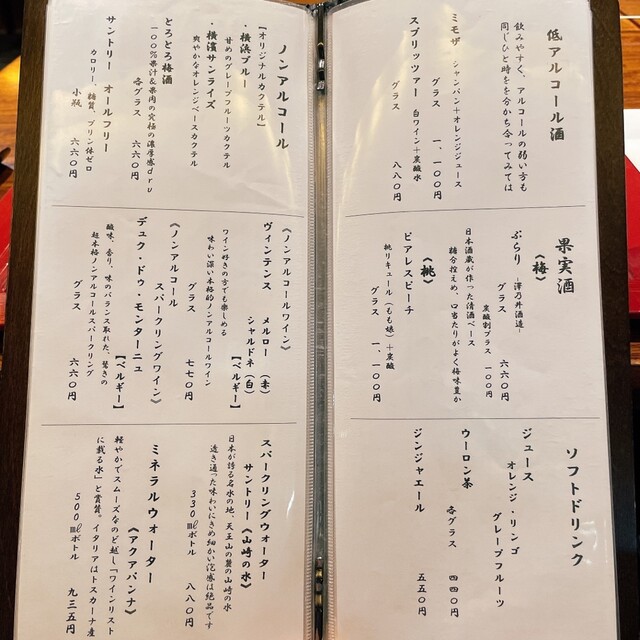 低アルコール酒
飲みやすく、アルコールの弱い方も
同じひと時を分かち合ってみては
ミモザ シャンパン＋オレンジジュース
グラス 一、一〇〇円
スプリッツァー 白ワイン＋炭酸水
グラス 八八〇円
果実酒
《梅》
ぷらり -澤乃井酒造-
グラス 六六〇円
炭酸割プラス 一〇〇円
日本酒蔵が作った清酒ベース
糖分控えめ、口当たりがよく梅味豊か
《桃》
ピアレスピーチ
桃リキュール（もも姫）＋炭酸
グラス 一、一〇〇円
ソフトドリンク
ジュース
オレンジ・リンゴ
グレープフルーツ
ウーロン茶
各グラス 四四〇円
ジンジャエール
五五〇円
ノンアルコール
【オリジナルカクテル】
・横浜ブルー
甘めのグレープフルーツカクテル
・横濱サンライズ
爽やかなオレンジベースカクテル
各グラス 六六〇円
とろとろ梅酒
１００％果汁＆果肉の究極の濃厚感ｄｒｙ
サントリー オールフリー
カロリー、糖質、プリン体ゼロ
小瓶 六六〇円
《ノンアルコールワイン》
ヴィンテンス メルロー（赤）
シャルドネ（白）
【ベルギー】
ワイン好きの方でも楽しめる
味わい深い本格的ノンアルコールワイン
グラス 七七〇円
《ノンアルコール
スパークリングワイン》
デュク・ドゥ・モンターニュ
【ベルギー】
酸味、香り、味のバランス取れた、驚きの
超本格ノンアルコールスパークリング
グラス 六六〇円
スパークリングウォーター
サントリー《山崎の水》
日本が誇る名水の地、天王山の麓の山崎の水
透き通った味わいにきめ細かい泡感は絶品です
３３０㎖ボトル 八八〇円
ミネラルウォーター
《アクアパンナ》
軽やかでスムーズなのど越し「ワインリスト
に載る水」と賞賛。イタリアはトスカーナ産
５００㎖ボトル 九三五円